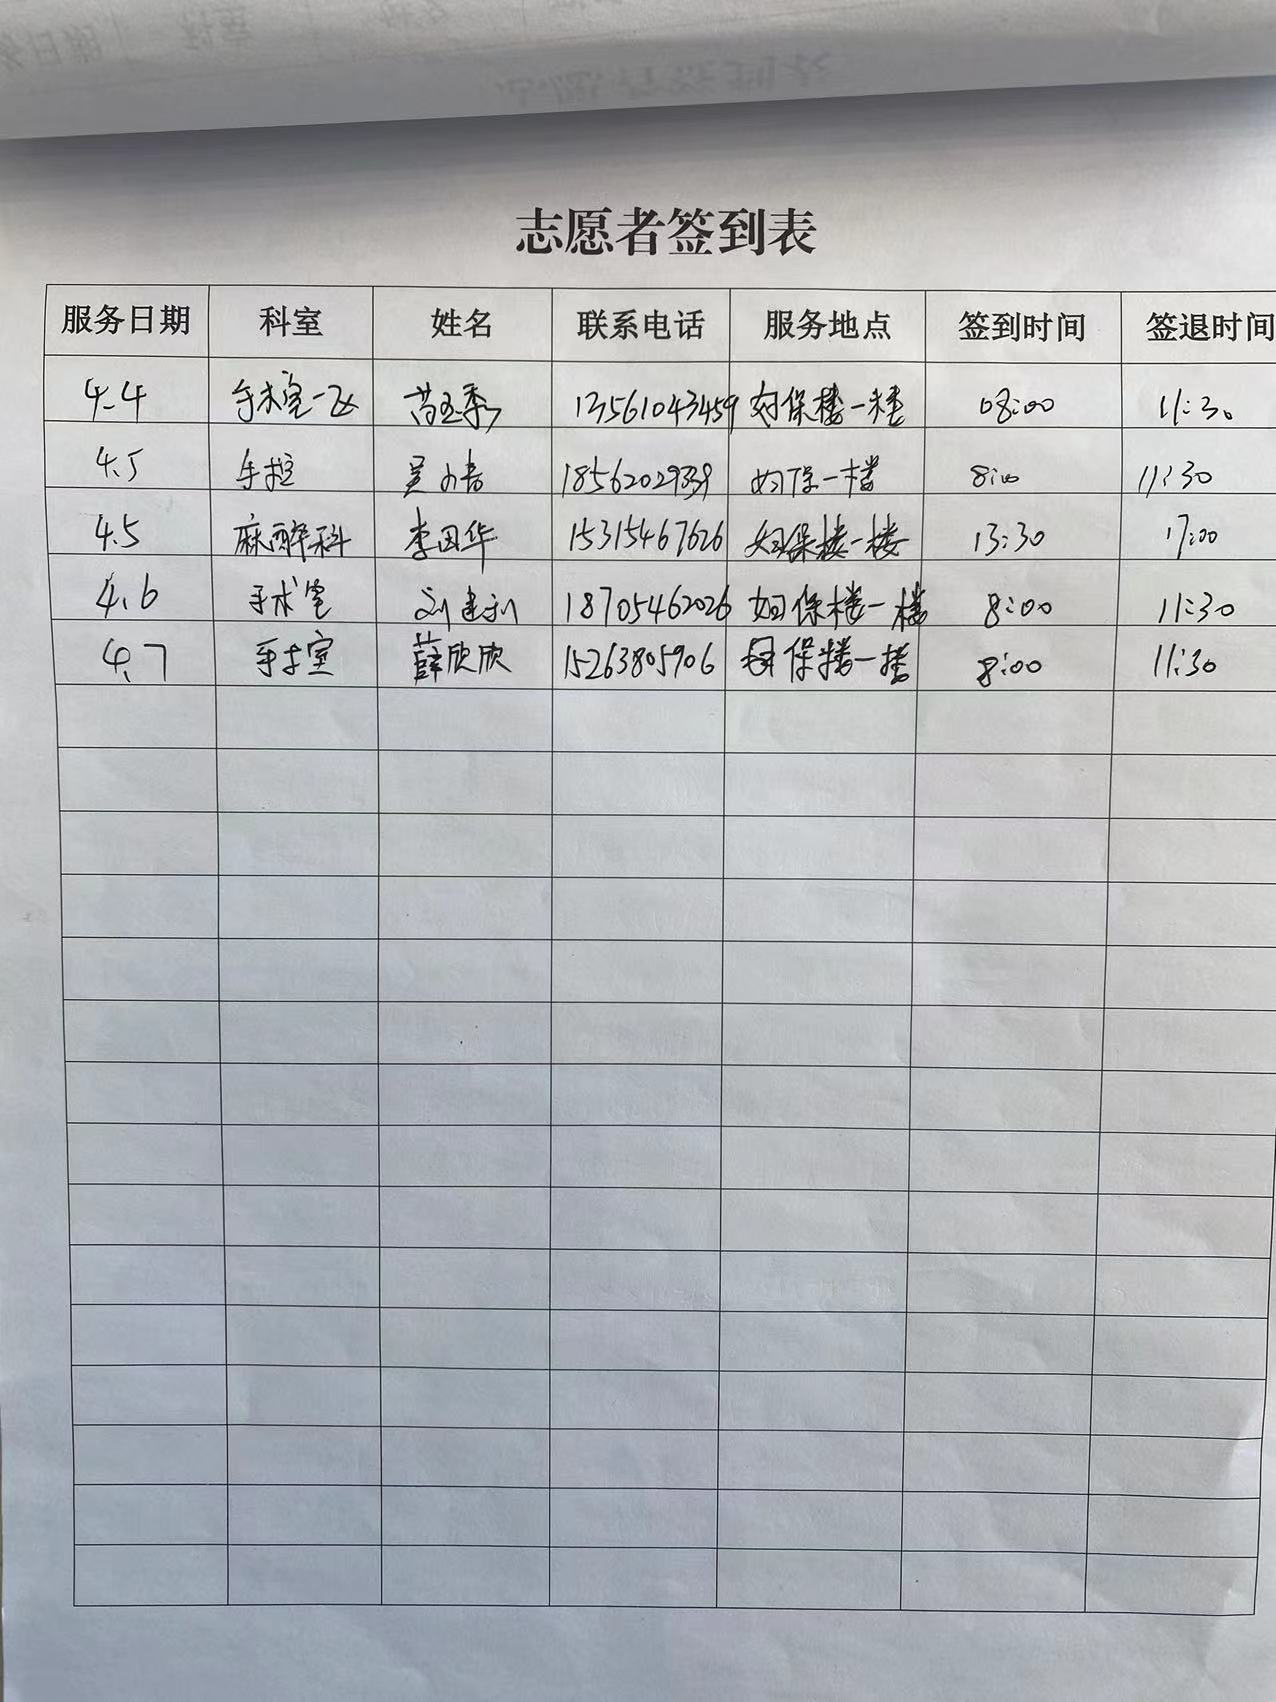 志愿者签到表
服务日期 科室 姓名 联系电话 服务地点 签到时间 签退时间
4.4 手术室一区 苗玉秀 13561043459 妇保楼一楼 08:00 11:30
4.5 手控 吴 18562029339 妇保一楼 8:00 11:30
4.5 麻醉科 李国华 15315467626 妇保楼一楼 13:30 17:00
4.6 手术室 刘建利 18705462026 妇保楼一楼 8:00 11:30
4.7 手术室 薛欣欣 15263805906 保楼一楼 8:00 11:30